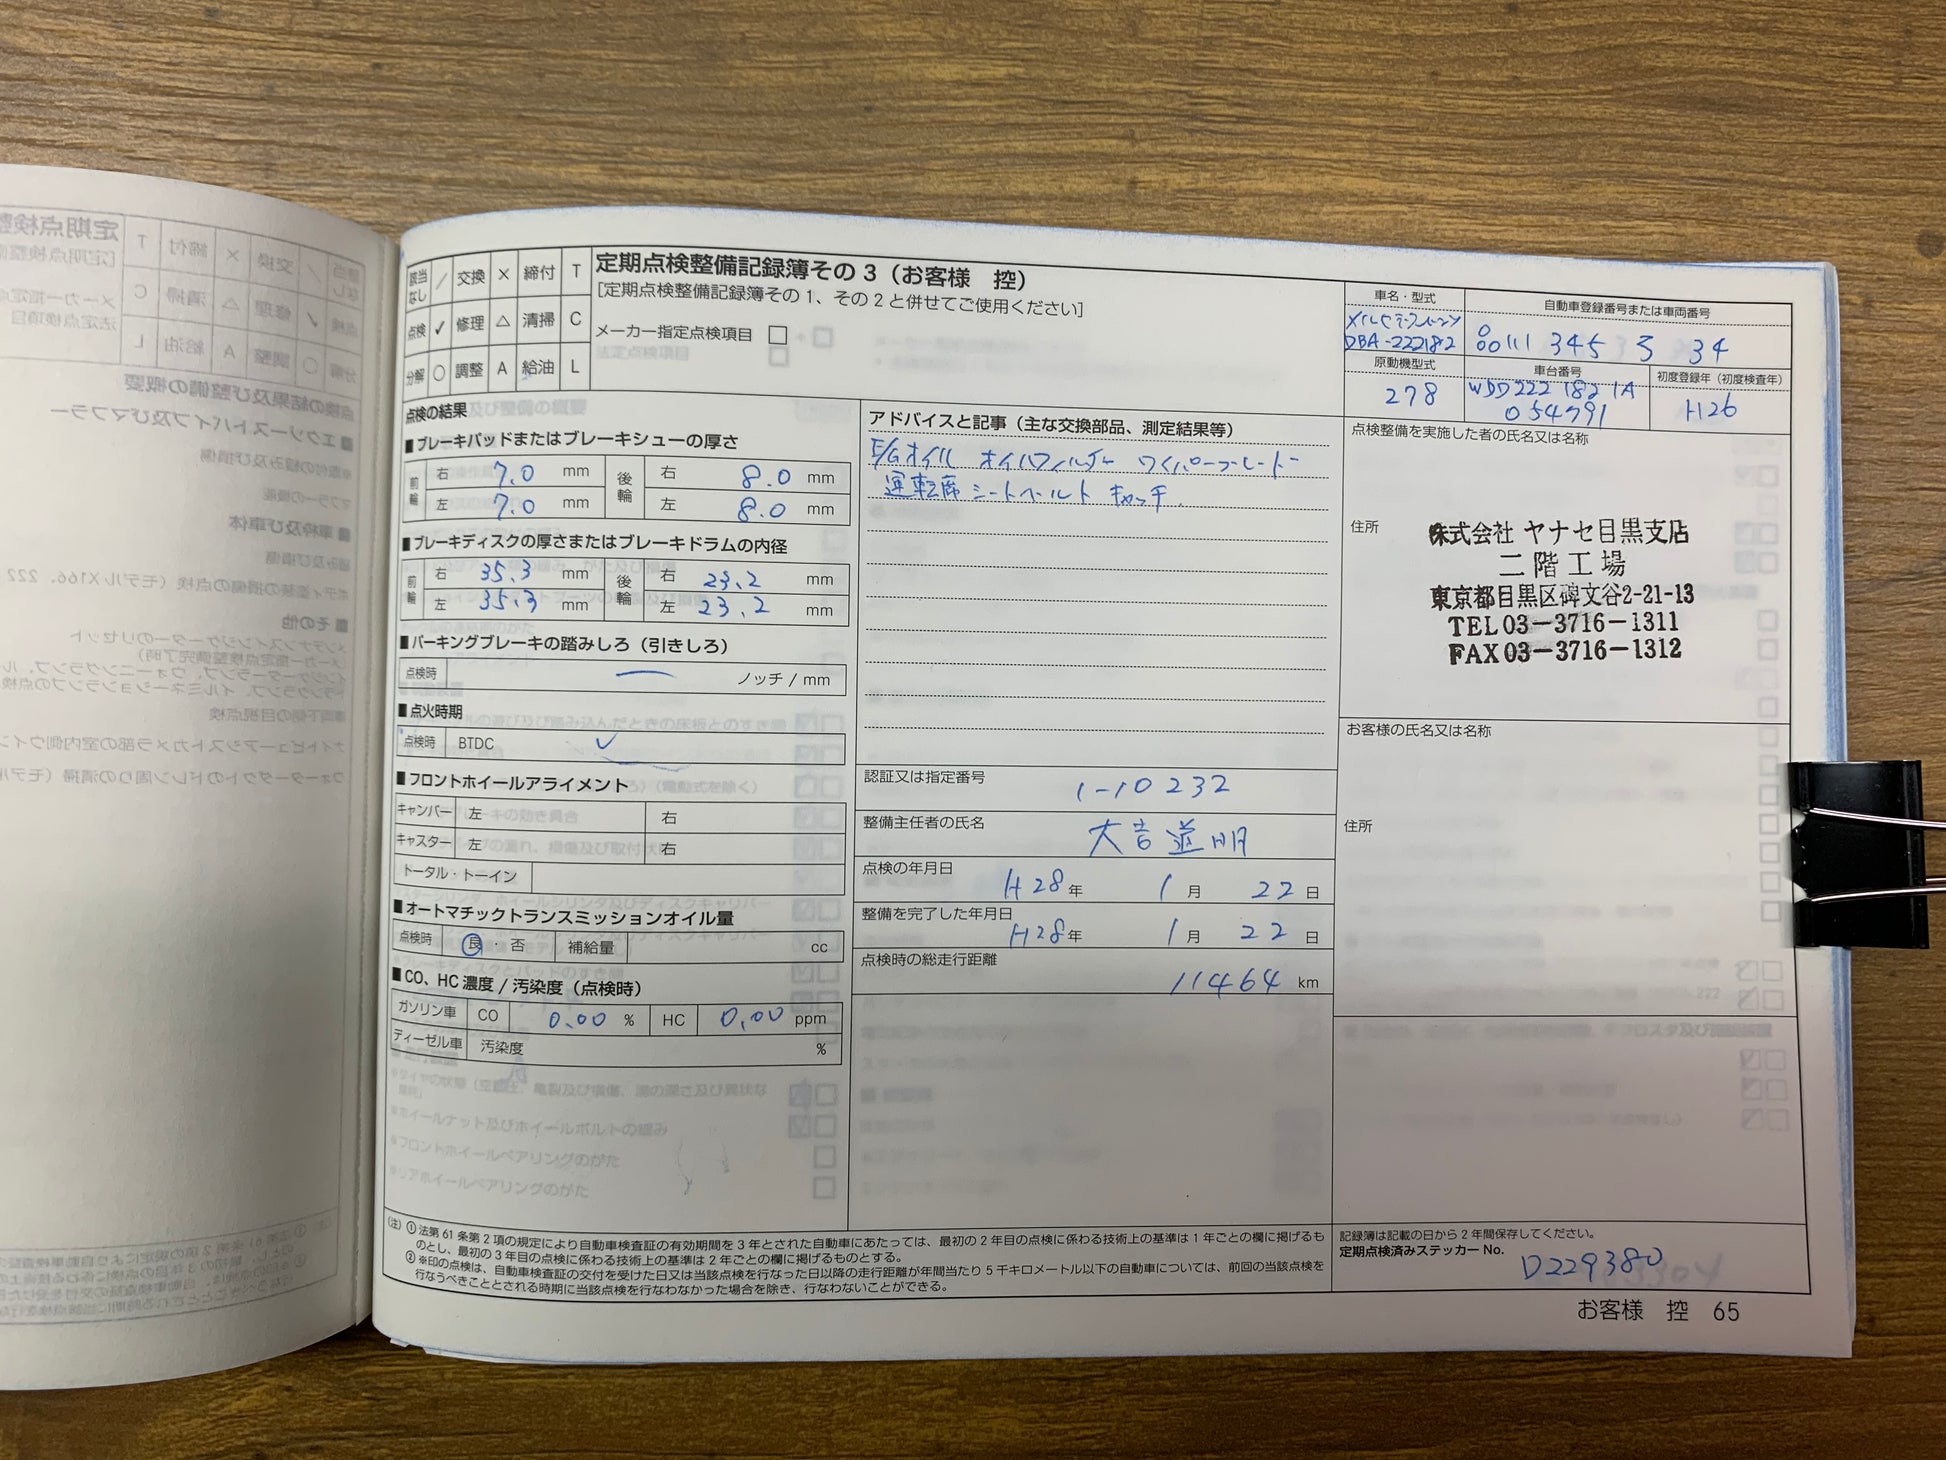 定期点検整備記録簿その3（お客様　控）
[定期点検整備記録簿その1、その2と併せてご使用ください]
該当なし ／ 交換 × 締付 T
点検 ✓ 修理 △ 清掃 C
分解 ○ 調整 A 給油 L
メーカー指定点検項目 □
法定点検項目
車名・型式
DBA-222182
自動車登録番号または車両番号
345 34
原動機型式
278
車台番号
WDD222 182 1A
054791
初度登録年（初度検査年）
H26
点検の結果
■ブレーキパッドまたはブレーキシューの厚さ
前輪 右 7.0 mm 後輪 右 8.0 mm
左 7.0 mm 左 8.0 mm
■ブレーキディスクの厚さまたはブレーキドラムの内径
前輪 右 35.3 mm 後輪 右 23.2 mm
左 35.3 mm 左 23.2 mm
■パーキングブレーキの踏みしろ（引きしろ）
点検時 — ノッチ / mm
■点火時期
点検時 BTDC ✓
■フロントホイールアライメント
キャンバー 左 右
キャスター 左 右
トータル・トーイン
■オートマチックトランスミッションオイル量
点検時 良・否 補給量 cc
■CO、HC濃度 / 汚染度（点検時）
ガソリン車 CO 0.00 % HC 0.00 ppm
ディーゼル車 汚染度 %
アドバイスと記事（主な交換部品、測定結果等）
E/Gオイル オイルフィルター ワイパーブレード
運転席 シートベルト キャッチ
認証又は指定番号
1-10232
整備主任者の氏名
点検の年月日
H28年 1月 22日
整備を完了した年月日
H28年 1月 22日
点検時の総走行距離
11464 km
点検整備を実施した者の氏名又は名称
住所
株式会社 ヤナセ目黒支店
二階工場
東京都目黒区碑文谷2-21-13
TEL03-3716-1311
FAX03-3716-1312
お客様の氏名又は名称
住所
（注）①法第61条第2項の規定により自動車検査証の有効期間を3年とされた自動車にあたっては、最初の2年目の点検に係わる技術上の基準は1年ごとの欄に掲げるも
のとし、最初の3年目の点検に係わる技術上の基準は2年ごとの欄に掲げるものとする。
②※印の点検は、自動車検査証の交付を受けた日又は当該点検を行なった日以降の走行距離が年間当たり5千キロメートル以下の自動車については、前回の当該点検を
行なうべきこととされる時期に当該点検を行なわなかった場合を除き、行なわないことができる。
記録簿は記載の日から2年間保存してください。
定期点検済みステッカーNo.
D229380
お客様　控　65